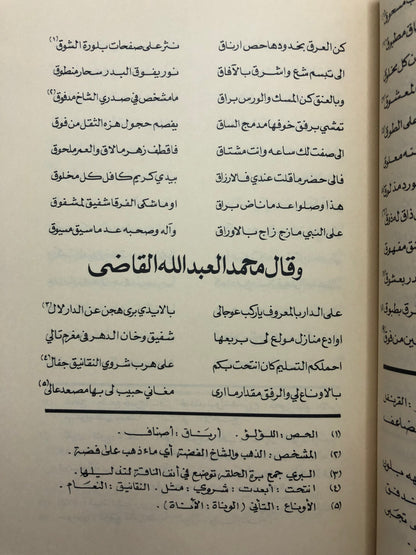 كن العرق بخدودها حص ارناق نثر على صفحات بلورة الشوق (١)
الى تبسم شع واشرق بالآفاق نور يفوق البدر سحار منطوق
وبالعنق كن المسك والورس براق ما مشخص في صدري الشاخ مدفوق (٢)
تمشي برفق خوفها مدمج الساق يفصم حجول هزه الثقل من فوق
الى صفت لك ساعه وانت مشتاق فاقطف زهر مالاق والعمر ملحوق
فالى حضر ماقلت عندي فالارزاق بيدي كريم كافل كل مخلوق
هذا وصلوا عد ما ناض براق او ماشكى الفرقا شفيق لمشفوق
على النبي ما زج زاج بالاوراق وآله وصحبه عد ماسيق مسيوق
وقال محمد العبد الله القاضي
على الدار بالمعروف ياركب عوجالى بالايدي برى هجن عن الدار لالال (٣)
اوادع منازل مولع لي بربعها شفيق وخان الدهر في مغرم تالي
احملكم التسليم كان انتحت بكم على هرب شروي النقانيق جفال (٤)
بالاوناع لي والرفق مقدار ما ارى مغاني حبيب لى بها مصعد عالى (٥)
(١) الحص : اللؤلؤ . أرناق : أصناف .
(٢) المشخص : الذهب والشاخ الفضة أي ماء ذهب على فضة .
(٣) البري جمع برة الحلقة توضع في أنف الناقة لتدليلها .
(٤) انتحت : أبعدت : شروي : مثل . النقانيق : النعام .
(٥) الأوناع : التأني ( الوناة : الأناة ) .